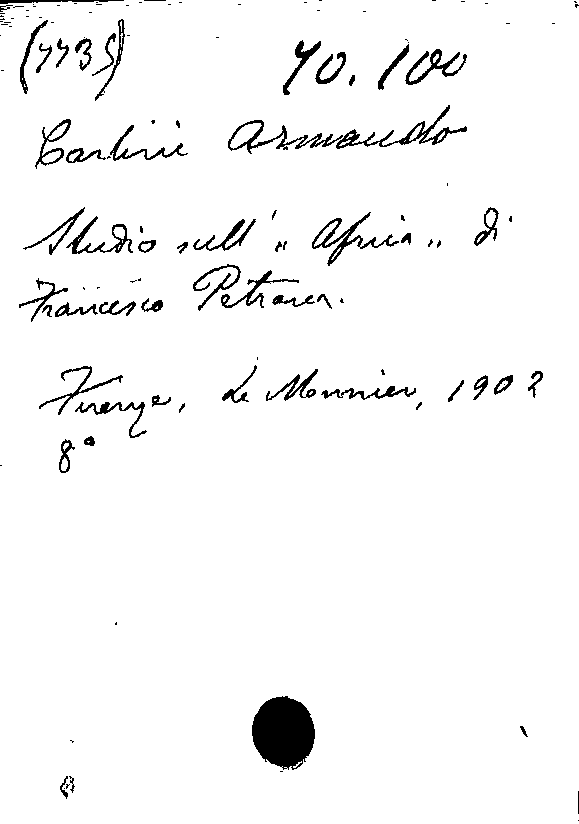 (7735)
70.100
Carlini Armando
Studio sull' „ Africa „ di
Francesco Petrarca.
Firenze, Le Monnier, 1902
8°